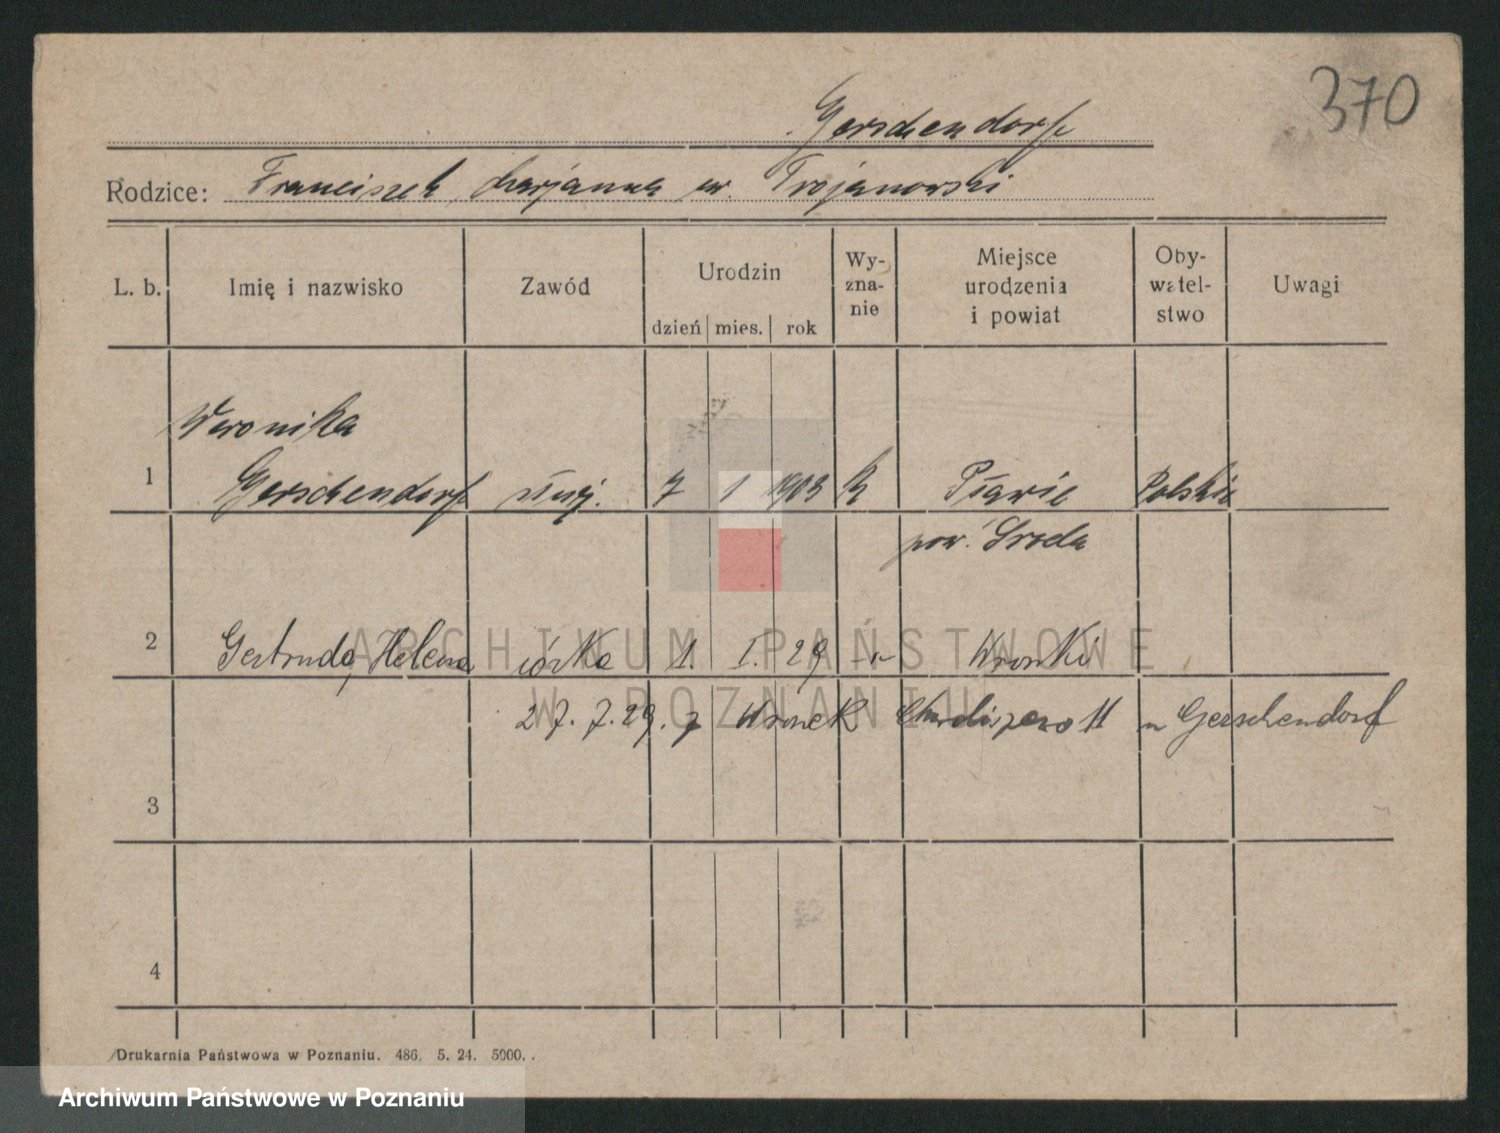 370
Gerschendorf
Rodzice: Franciszek, Marjanna ur. Trojanowski
L. b. Imię i nazwisko Zawód Urodzin dzień mies. rok Wy-zna-nie Miejsce urodzenia i powiat Oby-watel-stwo Uwagi
Weronika
1 Gerschendorf służ. 7 1 1903 k Pławie Polskie
pow. Środa
2 Gertruda, Helena córka 1. I. 29 -"- Wronki
27. 7. 29. z Wronek 11 u Gerschendorf
3
4
Drukarnia Państwowa w Poznaniu. 486. 5. 24. 5000.
ARCHIWUM PAŃSTWOWE
W POZNANIU
Archiwum Państwowe w Poznaniu